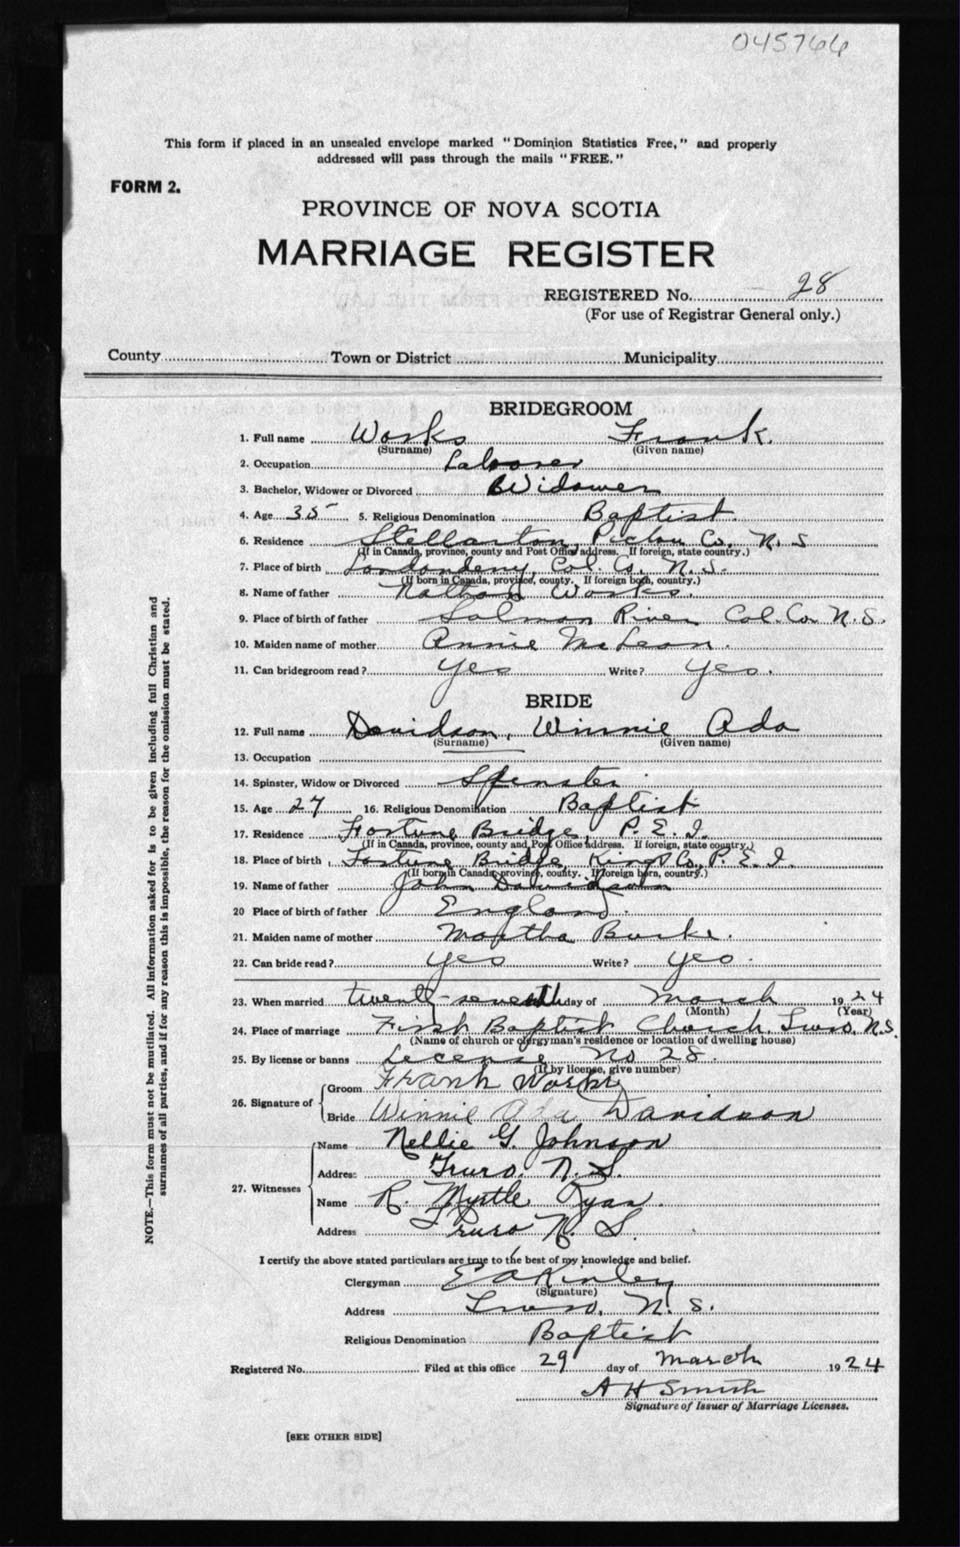 045766
This form if placed in an unsealed envelope marked "Dominion Statistics Free," and properly
addressed will pass through the mails "FREE."
FORM 2.
PROVINCE OF NOVA SCOTIA
MARRIAGE REGISTER
REGISTERED No. 28
(For use of Registrar General only.)
County Town or District Municipality
BRIDEGROOM
1. Full name Works Frank.
(Surname) (Given name)
2. Occupation Laborer
3. Bachelor, Widower or Divorced Widower
4. Age 35 5. Religious Denomination Baptist.
6. Residence Stellarton, Pictou Co. N. S
(If in Canada, province, county and Post Office address. If foreign, state country.)
7. Place of birth Londonderry, Col. Co. N. S.
(If born in Canada, province, county. If foreign born, country.)
8. Name of father Nathan Works.
9. Place of birth of father Salmon River Col. Co. N. S.
10. Maiden name of mother Annie McLean.
11. Can bridegroom read? yes Write? yes.
BRIDE
12. Full name Davidson, Winnie Ada
(Surname) (Given name)
13. Occupation
14. Spinster, Widow or Divorced Spinster
15. Age 27 16. Religious Denomination Baptist
17. Residence Fortune Bridge, P. E. I.
(If in Canada, province, county and Post Office address. If foreign, state country.)
18. Place of birth Fortune Bridge, Kings Co, P. E. I.
(If born in Canada, province, county. If foreign born, country.)
19. Name of father John Davidson
20 Place of birth of father England.
21. Maiden name of mother Martha Burke.
22. Can bride read? yes Write? yes.
23. When married twenty-seventh day of March 1924
(Month) (Year)
24. Place of marriage First Baptist Church, Truro, N.S.
(Name of church or clergyman's residence or location of dwelling house)
25. By license or banns License No 28.
(If by license, give number)
26. Signature of Groom Frank Works
Bride Winnie Ada Davidson
27. Witnesses Name Nellie G. Johnson
Address Truro, N. S.
Name R. Myrtle Ryan.
Address Truro N. S.
I certify the above stated particulars are true to the best of my knowledge and belief.
Clergyman E A Kinley
(Signature)
Address Truro, N. S.
Religious Denomination Baptist
Registered No. Filed at this office 29 day of March 1924
A H Smith
Signature of Issuer of Marriage Licenses.
[SEE OTHER SIDE]
NOTE.—This form must not be mutilated. All information asked for is to be given including full Christian and
surnames of all parties, and if for any reason this is impossible, the reason for the omission must be stated.